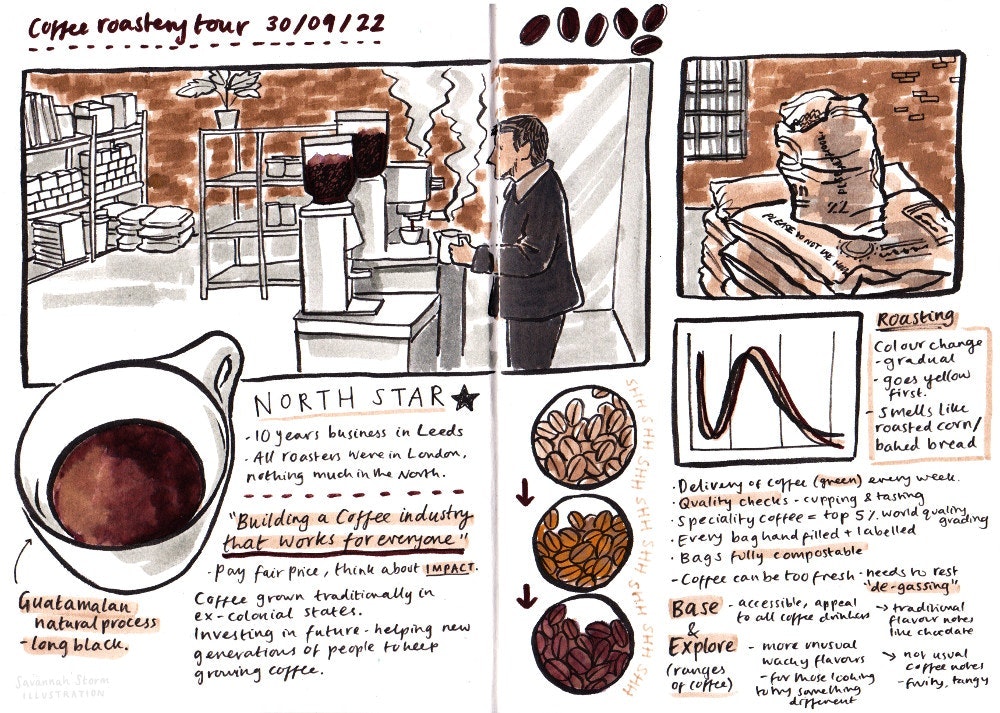 Coffee roastery tour 30/09/22
PLEASE DO NOT USE HOOKS
NORTH STAR
- 10 years business in Leeds
- All roasters were in London,
nothing much in the North.
"Building a Coffee industry
that works for everyone"
- Pay fair price, think about IMPACT.
Coffee grown traditionally in
ex-colonial states.
Investing in future - helping new
generations of people to keep
growing coffee.
Guatamalan
natural process
- long black.
Savannah Storm
ILLUSTRATION
SHH SHH SHH SHH SHH SHH SHH
Roasting
Colour change
- gradual
- goes yellow
first.
- Smells like
roasted corn/
baked bread
· Delivery of coffee (green) every week.
· Quality checks - cupping & tasting
· Speciality coffee = top 5% world quality
grading
· Every bag hand filled + labelled
· Bags fully compostable
- Coffee can be too fresh - needs to rest
"de-gassing"
Base - accessible, appeal
to all coffee drinkers
→ traditional
flavour notes
like chocolate
&
Explore
(ranges
of coffee)
- more unusual
wacky flavours
- for those looking
to try something
different
→ not usual
coffee notes
- fruity, tangy